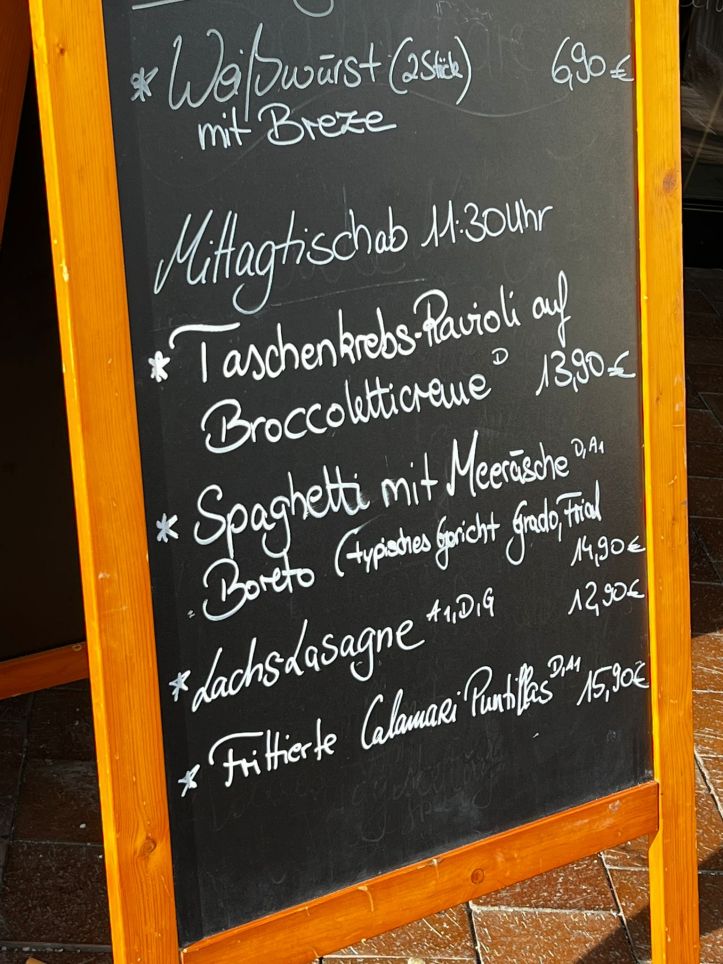 * Weißwürst (2 Stück) 6,90 €
mit Breze
Mittagtisch ab 11:30 Uhr
* Taschenkrebs-Ravioli auf
Broccoletticreme D 13,90 €
* Spaghetti mit Meeräsche D, A1
Boreto (typisches Gericht Grado, Frial
14,90 €
* Lachs Lasagne A1, D, G 12,90 €
* Frittierte Calamari Puntillas D, A1 15,90 €